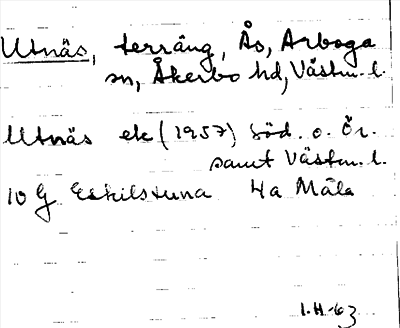 Utnäs, terräng, Ås, Arboga
sn, Åkerbo hd, Västm. l.
Utnäs ek (1957) Söd. o. Ör.
samt Västm. l.
10 G Eskilstuna 4a Mäla
1.H-63